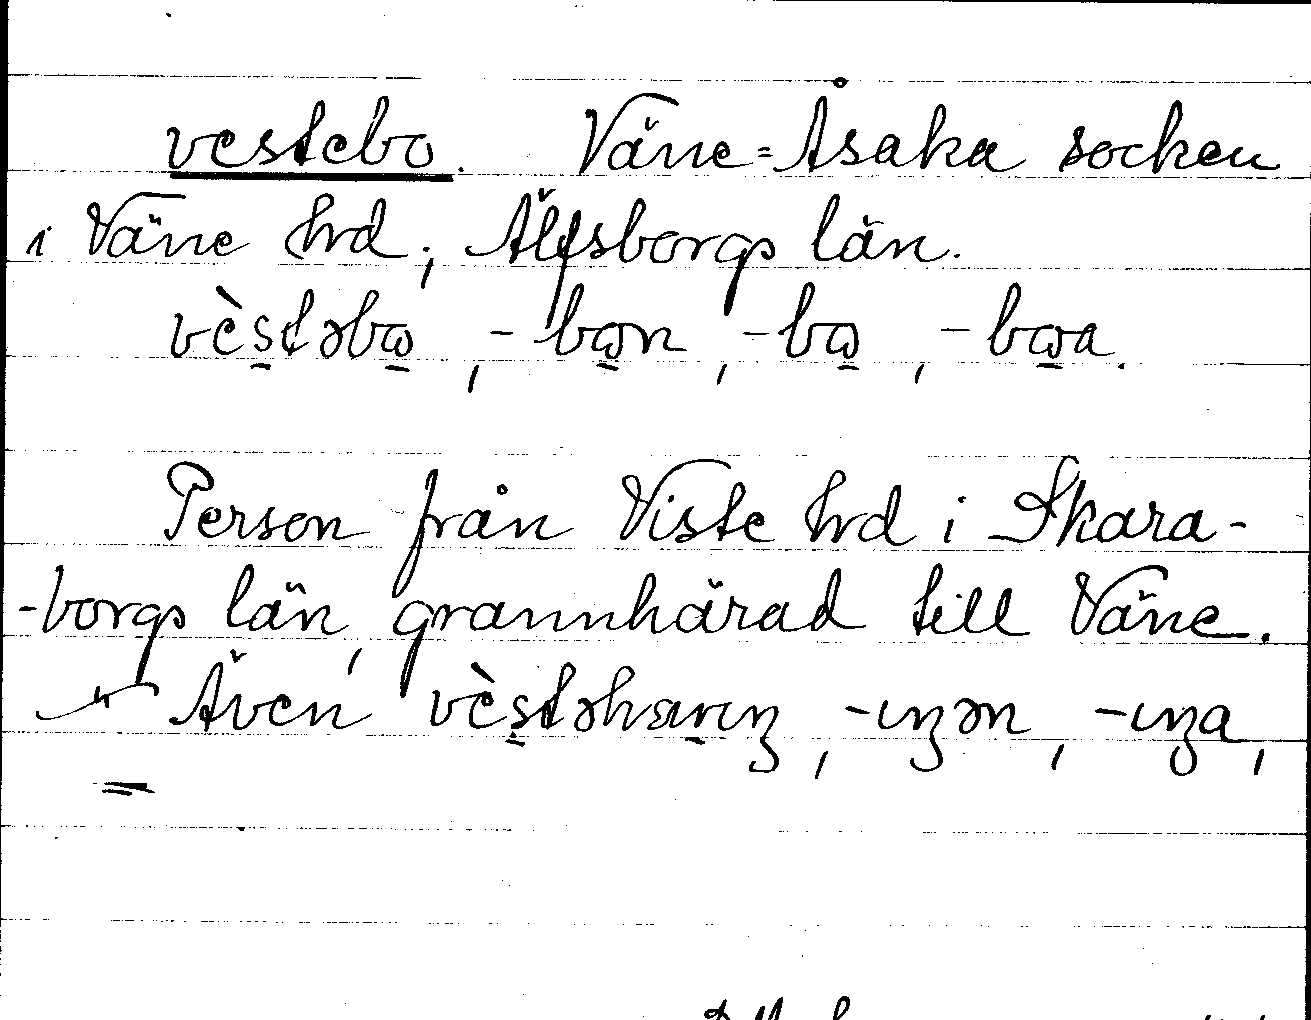 vestebo. Väne-Åsaka socken
i Väne hrd, Älfsborgs län.
vèstəbɷ, -bɷn, -bɷ, -bɷa.
Person från Viste hrd i Skara-
-borgs län, grannhärad till Väne.
Även -ıŋən, -ıŋa,